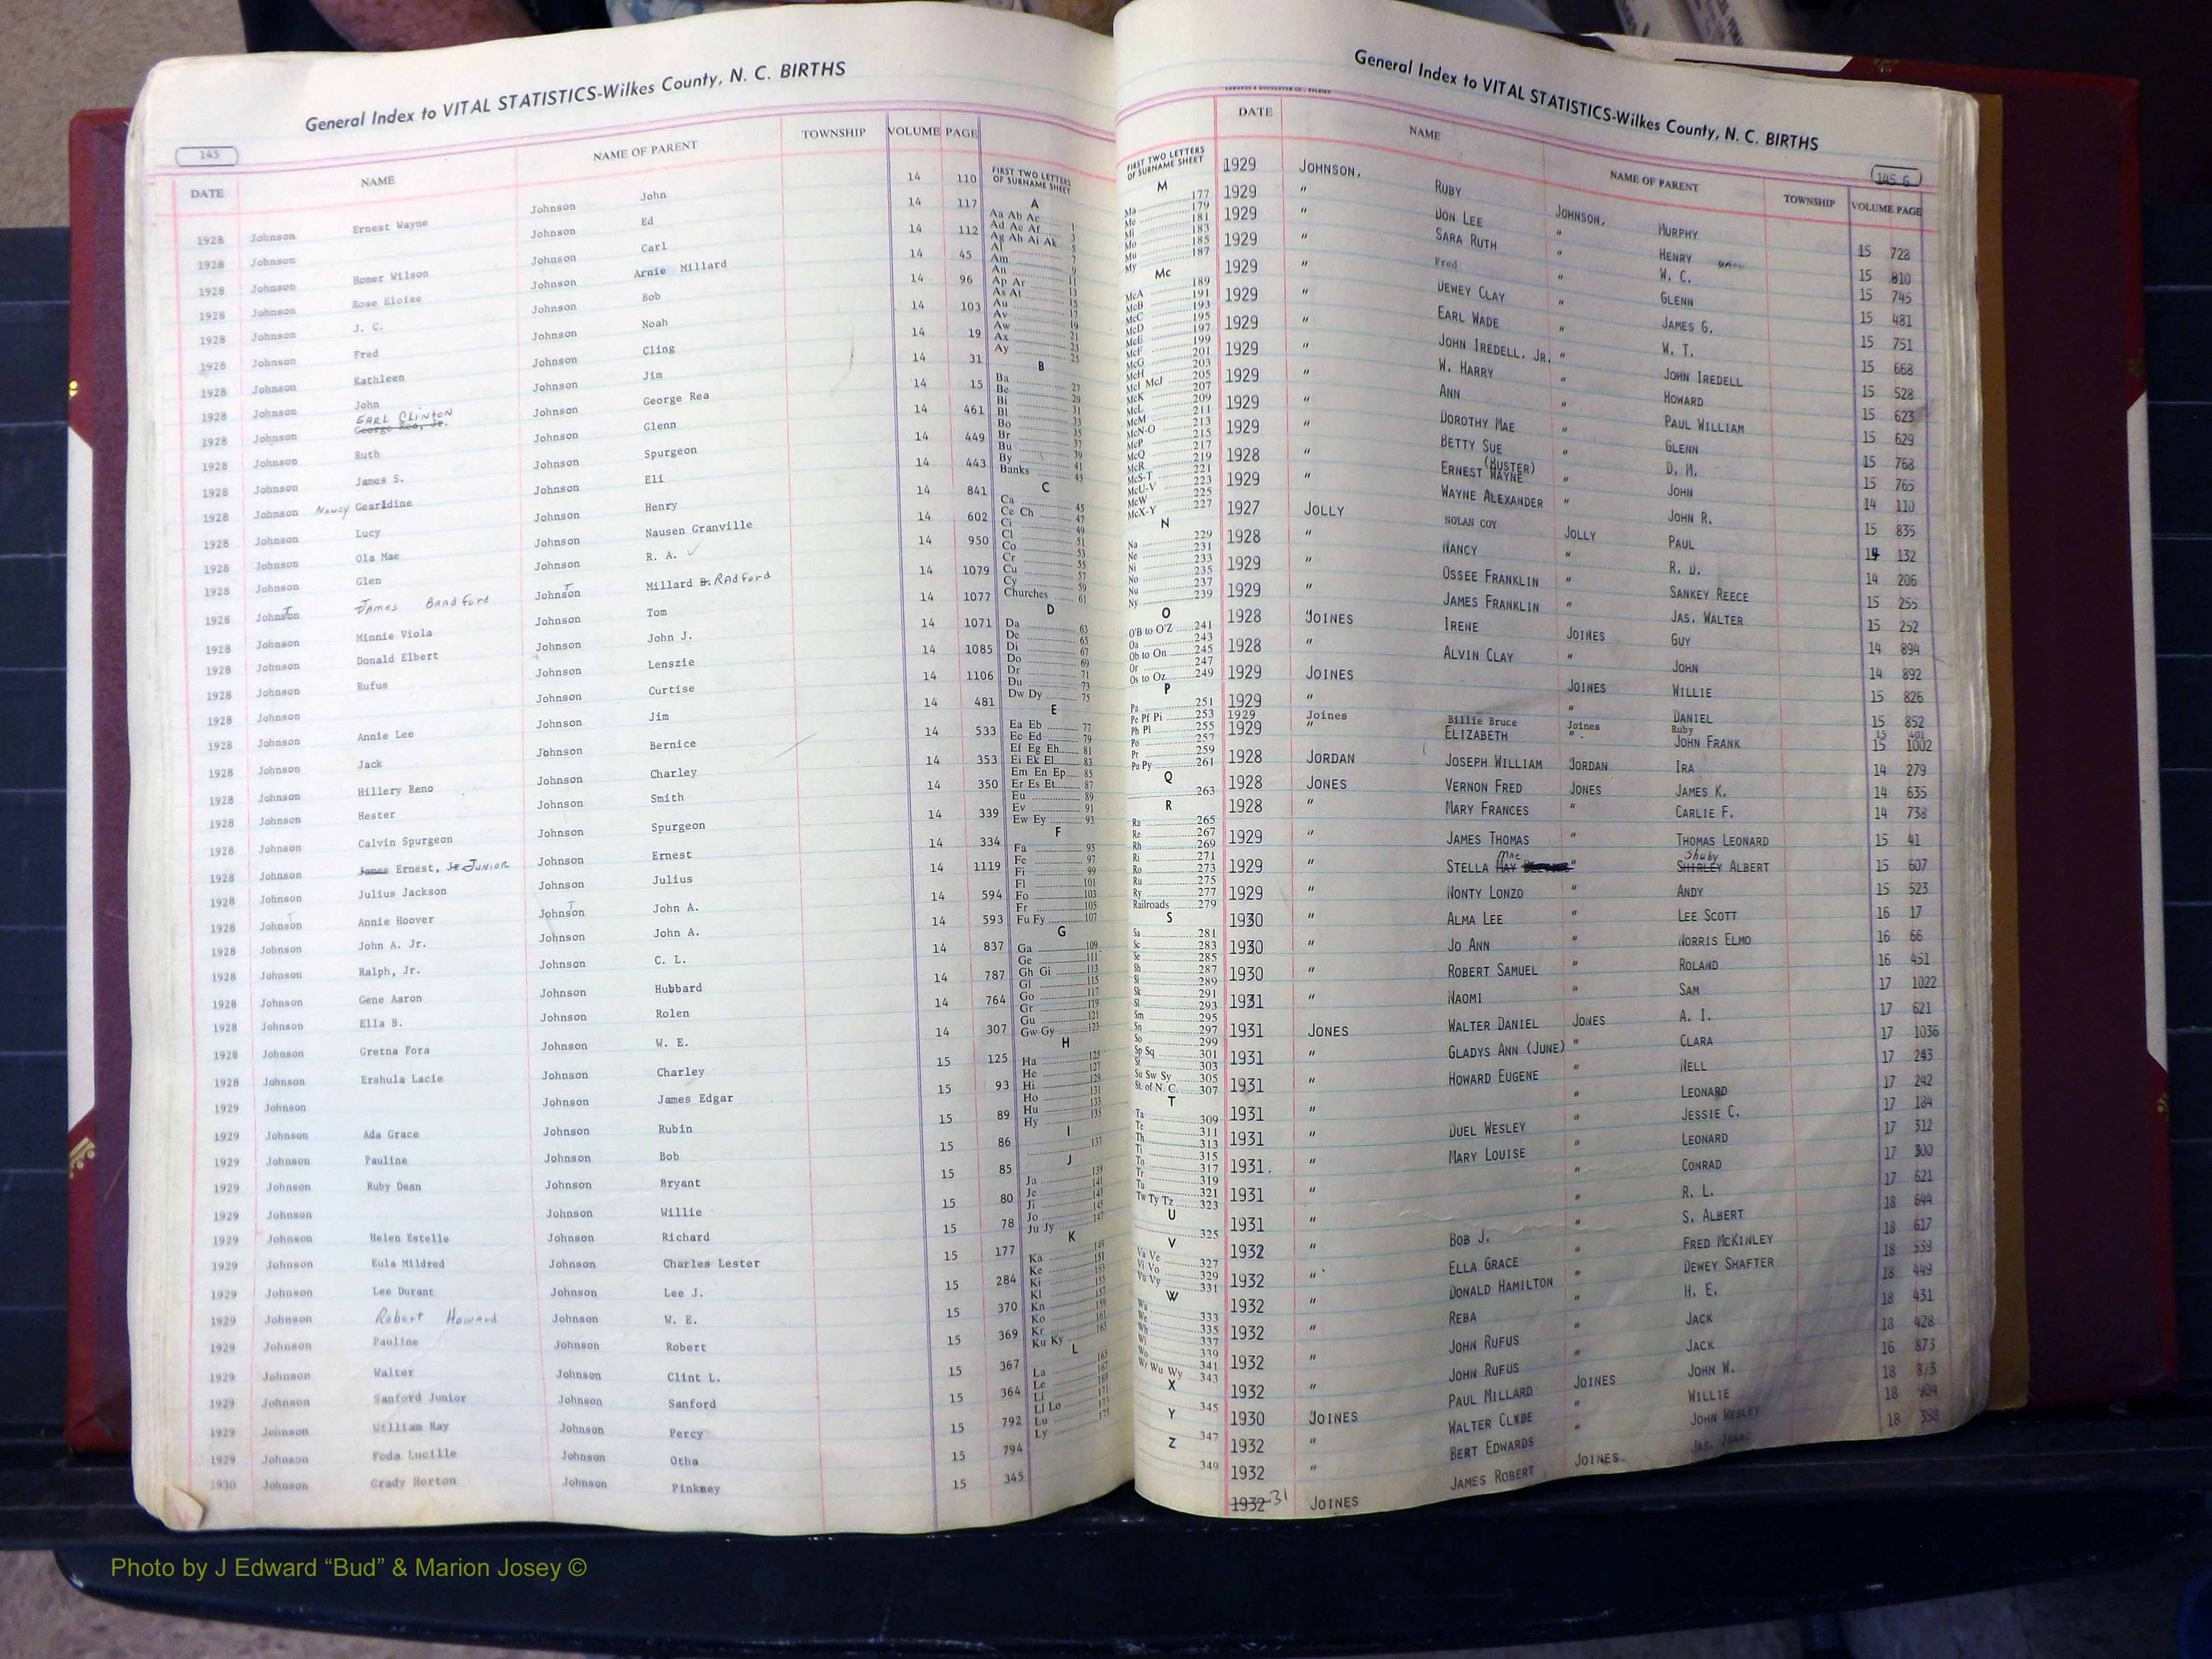 General Index to VITAL STATISTICS-Wilkes County, N. C. BIRTHS
145
DATE NAME NAME OF PARENT TOWNSHIP VOLUME PAGE
1928 Johnson Ernest Wayne Johnson John 14 110
1928 Johnson Johnson Ed 14 117
1928 Johnson Homer Wilson Johnson Carl 14 112
1928 Johnson Rose Eloise Johnson Arnie Millard 14 45
1928 Johnson J. C. Johnson Bob 14 96
1928 Johnson Fred Johnson Noah 14 103
1928 Johnson Kathleen Johnson Cling 14 19
1928 Johnson John Johnson Jim 14 31
1928 Johnson EARL CLINTON George Rea, Jr. Johnson George Rea 14 15
1928 Johnson Ruth Johnson Glenn 14 461
1928 Johnson James S. Johnson Spurgeon 14 449
1928 Johnson Nancy Gearldine Johnson Eli 14 443
1928 Johnson Lucy Johnson Henry 14 841
1928 Johnson Ola Mae Johnson Nausen Granville 14 602
1928 Johnson Glen Johnson R. A. ✓ 14 950
1928 Johnson T James Bradford Johnson T Millard B. Radford 14 1079
1928 Johnson Minnie Viola Johnson Tom 14 1077
1928 Johnson Donald Elbert Johnson John J. 14 1071
1928 Johnson Rufus Johnson Lenszie 14 1085
1928 Johnson Johnson Curtise 14 1106
1928 Johnson Annie Lee Johnson Jim 14 481
1928 Johnson Jack Johnson Bernice 14 533
1928 Johnson Hillery Reno Johnson Charley 14 353
1928 Johnson Hester Johnson Smith 14 350
1928 Johnson Calvin Spurgeon Johnson Spurgeon 14 339
1928 Johnson James Ernest, Jr JUNIOR Johnson Ernest 14 334
1928 Johnson Julius Jackson Johnson Julius 14 1119
1928 Johnson T Annie Hoover Johnson T John A. 14 594
1928 Johnson John A. Jr. Johnson John A. 14 593
1928 Johnson Ralph, Jr. Johnson C. L. 14 837
1928 Johnson Gene Aaron Johnson Hubbard 14 787
1928 Johnson Ella B. Johnson Rolen 14 764
1928 Johnson Gretna Fora Johnson W. E. 14 307
1928 Johnson Ershula Lacie Johnson Charley 15 125
1929 Johnson Johnson James Edgar 15 93
1929 Johnson Ada Grace Johnson Rubin 15 89
1929 Johnson Pauline Johnson Bob 15 86
1929 Johnson Ruby Dean Johnson Bryant 15 85
1929 Johnson Johnson Willie 15 80
1929 Johnson Helen Estelle Johnson Richard 15 78
1929 Johnson Eula Mildred Johnson Charles Lester 15 177
1929 Johnson Lee Durant Johnson Lee J. 15 284
1929 Johnson Robert Howard Johnson W. E. 15 370
1929 Johnson Pauline Johnson Robert 15 369
1929 Johnson Walter Johnson Clint L. 15 367
1929 Johnson Sanford Junior Johnson Sanford 15 364
1929 Johnson William Ray Johnson Percy 15 792
1929 Johnson Foda Lucille Johnson Otha 15 794
1930 Johnson Grady Horton Johnson Pinkney 15 345
FIRST TWO LETTERS
OF SURNAME SHEET
A
Aa Ab Ac 1
Ad Ae Af 3
Ag Ah Ai Ak 5
Al 7
Am 9
An 11
Ap Ar 13
As At 15
Au 17
Av 19
Aw 21
Ax 23
Ay 25
B
Ba 27
Be 29
Bi 31
Bl 33
Bo 35
Br 37
Bu 39
By 41
Banks 43
C
Ca 45
Ce Ch 47
Ci 49
Cl 51
Co 53
Cr 55
Cu 57
Cy 59
Churches 61
D
Da 63
De 65
Di 67
Do 69
Dr 71
Du 73
Dw Dy 75
E
Ea Eb 77
Ec Ed 79
Ef Eg Eh 81
Ei Ek El 83
Em En Ep 85
Er Es Et 87
Eu 89
Ev 91
Ew Ey 93
F
Fa 95
Fe 97
Fi 99
Fl 101
Fo 103
Fr 105
Fu Fy 107
G
Ga 109
Ge 111
Gh Gi 113
Gl 115
Go 117
Gr 119
Gu 121
Gw Gy 123
H
Ha 125
He 127
Hi 129
Ho 131
Hu 133
Hy 135
I
137
J
Ja 139
Je 141
Ji 143
Jo 145
Ju Jy 147
K
Ka 149
Ke 151
Ki 153
Kl 155
Kn 157
Ko 159
Kr 161
Ku Ky 163
L
La 165
Le 167
Li 169
Ll Lo 171
Lu 173
Ly 175
General Index to VITAL STATISTICS-Wilkes County, N. C. BIRTHS
145 G
FIRST TWO LETTERS
OF SURNAME SHEET
M
Ma 177
Me 179
Mi 181
Mo 183
Mu 185
My 187
Mc
McA 189
McB 191
McC 193
McD 195
McE 197
McF 199
McG 201
McH 203
McI McJ 205
McK 207
McL 209
McM 211
McN-O 213
McP 215
McQ 217
McR 219
McS-T 221
McU-V 223
McW 225
McX-Y 227
N
Na 229
Ne 231
Ni 233
No 235
Nu 237
Ny 239
O
O'B to O'Z 241
Oa 243
Ob to On 245
Or 247
Os to Oz 249
P
Pa 251
Pe Pf Pi 253
Ph Pl 255
Po 257
Pr 259
Pu Py 261
Q
263
R
Ra 265
Re 267
Rh 269
Ri 271
Ro 273
Ru 275
Ry 277
Railroads 279
S
Sa 281
Sc 283
Se 285
Sh 287
Si 289
Sk 291
Sl 293
Sm 295
Sn 297
So 299
Sp Sq 301
St 303
Su Sw Sy 305
St. of N. C. 307
T
Ta 309
Te 311
Th 313
Ti 315
To 317
Tr 319
Tu 321
Tw Ty Tz 323
U
325
V
Va Ve 327
Vi Vo 329
Vu Vy 331
W
Wa 333
We 335
Wh 337
Wi 339
Wo 341
Wr Wu Wy 343
X
345
Y
347
Z
349
DATE NAME NAME OF PARENT TOWNSHIP VOLUME PAGE
1929 JOHNSON, RUBY JOHNSON, MURPHY 15 728
1929 " DON LEE " HENRY 15 810
1929 " SARA RUTH " W. C. 15 745
1929 " Fred " GLENN 15 481
1929 " DEWEY CLAY " JAMES G. 15 751
1929 " EARL WADE " W. T. 15 668
1929 " JOHN IREDELL, JR. " JOHN IREDELL 15 528
1929 " W. HARRY " HOWARD 15 623
1929 " ANN " PAUL WILLIAM 15 629
1929 " DOROTHY MAE " GLENN 15 768
1929 " BETTY SUE " D. M. 15 765
1928 " ERNEST WAYNE (BUSTER) " JOHN 14 110
1929 " WAYNE ALEXANDER " JOHN R. 15 835
1927 JOLLY NOLAN COY JOLLY PAUL 14 132
1928 " NANCY " R. D. 14 206
1929 " OSSEE FRANKLIN " SANKEY REECE 15 255
1929 " JAMES FRANKLIN " JAS. WALTER 15 252
1928 JOINES IRENE JOINES GUY 14 894
1928 " ALVIN CLAY " JOHN 14 892
1929 JOINES JOINES WILLIE 15 826
1929 " " DANIEL 15 852
1929 Joines Billie Bruce Joines Ruby 15 401
1929 " ELIZABETH " JOHN FRANK 15 1002
1928 JORDAN JOSEPH WILLIAM JORDAN IRA 14 279
1928 JONES VERNON FRED JONES JAMES K. 14 635
1928 " MARY FRANCES " CARLIE F. 14 738
1929 " JAMES THOMAS " THOMAS LEONARD 15 41
1929 " STELLA MAY mae " SHIRLEY Shuby ALBERT 15 607
1929 " MONTY LONZO " ANDY 15 523
1930 " ALMA LEE " LEE SCOTT 16 17
1930 " JO ANN " NORRIS ELMO 16 66
1930 " ROBERT SAMUEL " ROLAND 16 451
1931 " NAOMI " SAM 17 1022
1931 JONES WALTER DANIEL JONES A. I. 17 621
1931 " GLADYS ANN (JUNE) " CLARA 17 1036
1931 " HOWARD EUGENE " NELL 17 243
1931 " " LEONARD 17 242
1931 " DUEL WESLEY " JESSIE C. 17 184
1931 " MARY LOUISE " LEONARD 17 312
1931 " " CONRAD 17 300
1931 " " R. L. 17 621
1932 " BOB J. " S. ALBERT 18 644
1932 " ELLA GRACE " FRED MCKINLEY 18 617
1932 " DONALD HAMILTON " DEWEY SHAFTER 18 539
1932 " REBA " H. E. 18 449
1932 " JOHN RUFUS " JACK 18 431
1932 " JOHN RUFUS " JACK 18 428
1930 JOINES PAUL MILLARD JOINES JOHN W. 16 873
1932 " WALTER CLYDE " WILLIE 18 873
1932 " BERT EDWARDS " JOHN WESLEY 18 904
1932-31 JOINES JAMES ROBERT JOINES JAS. ISAAC 18 358
Photo by J Edward “Bud” & Marion Josey ©